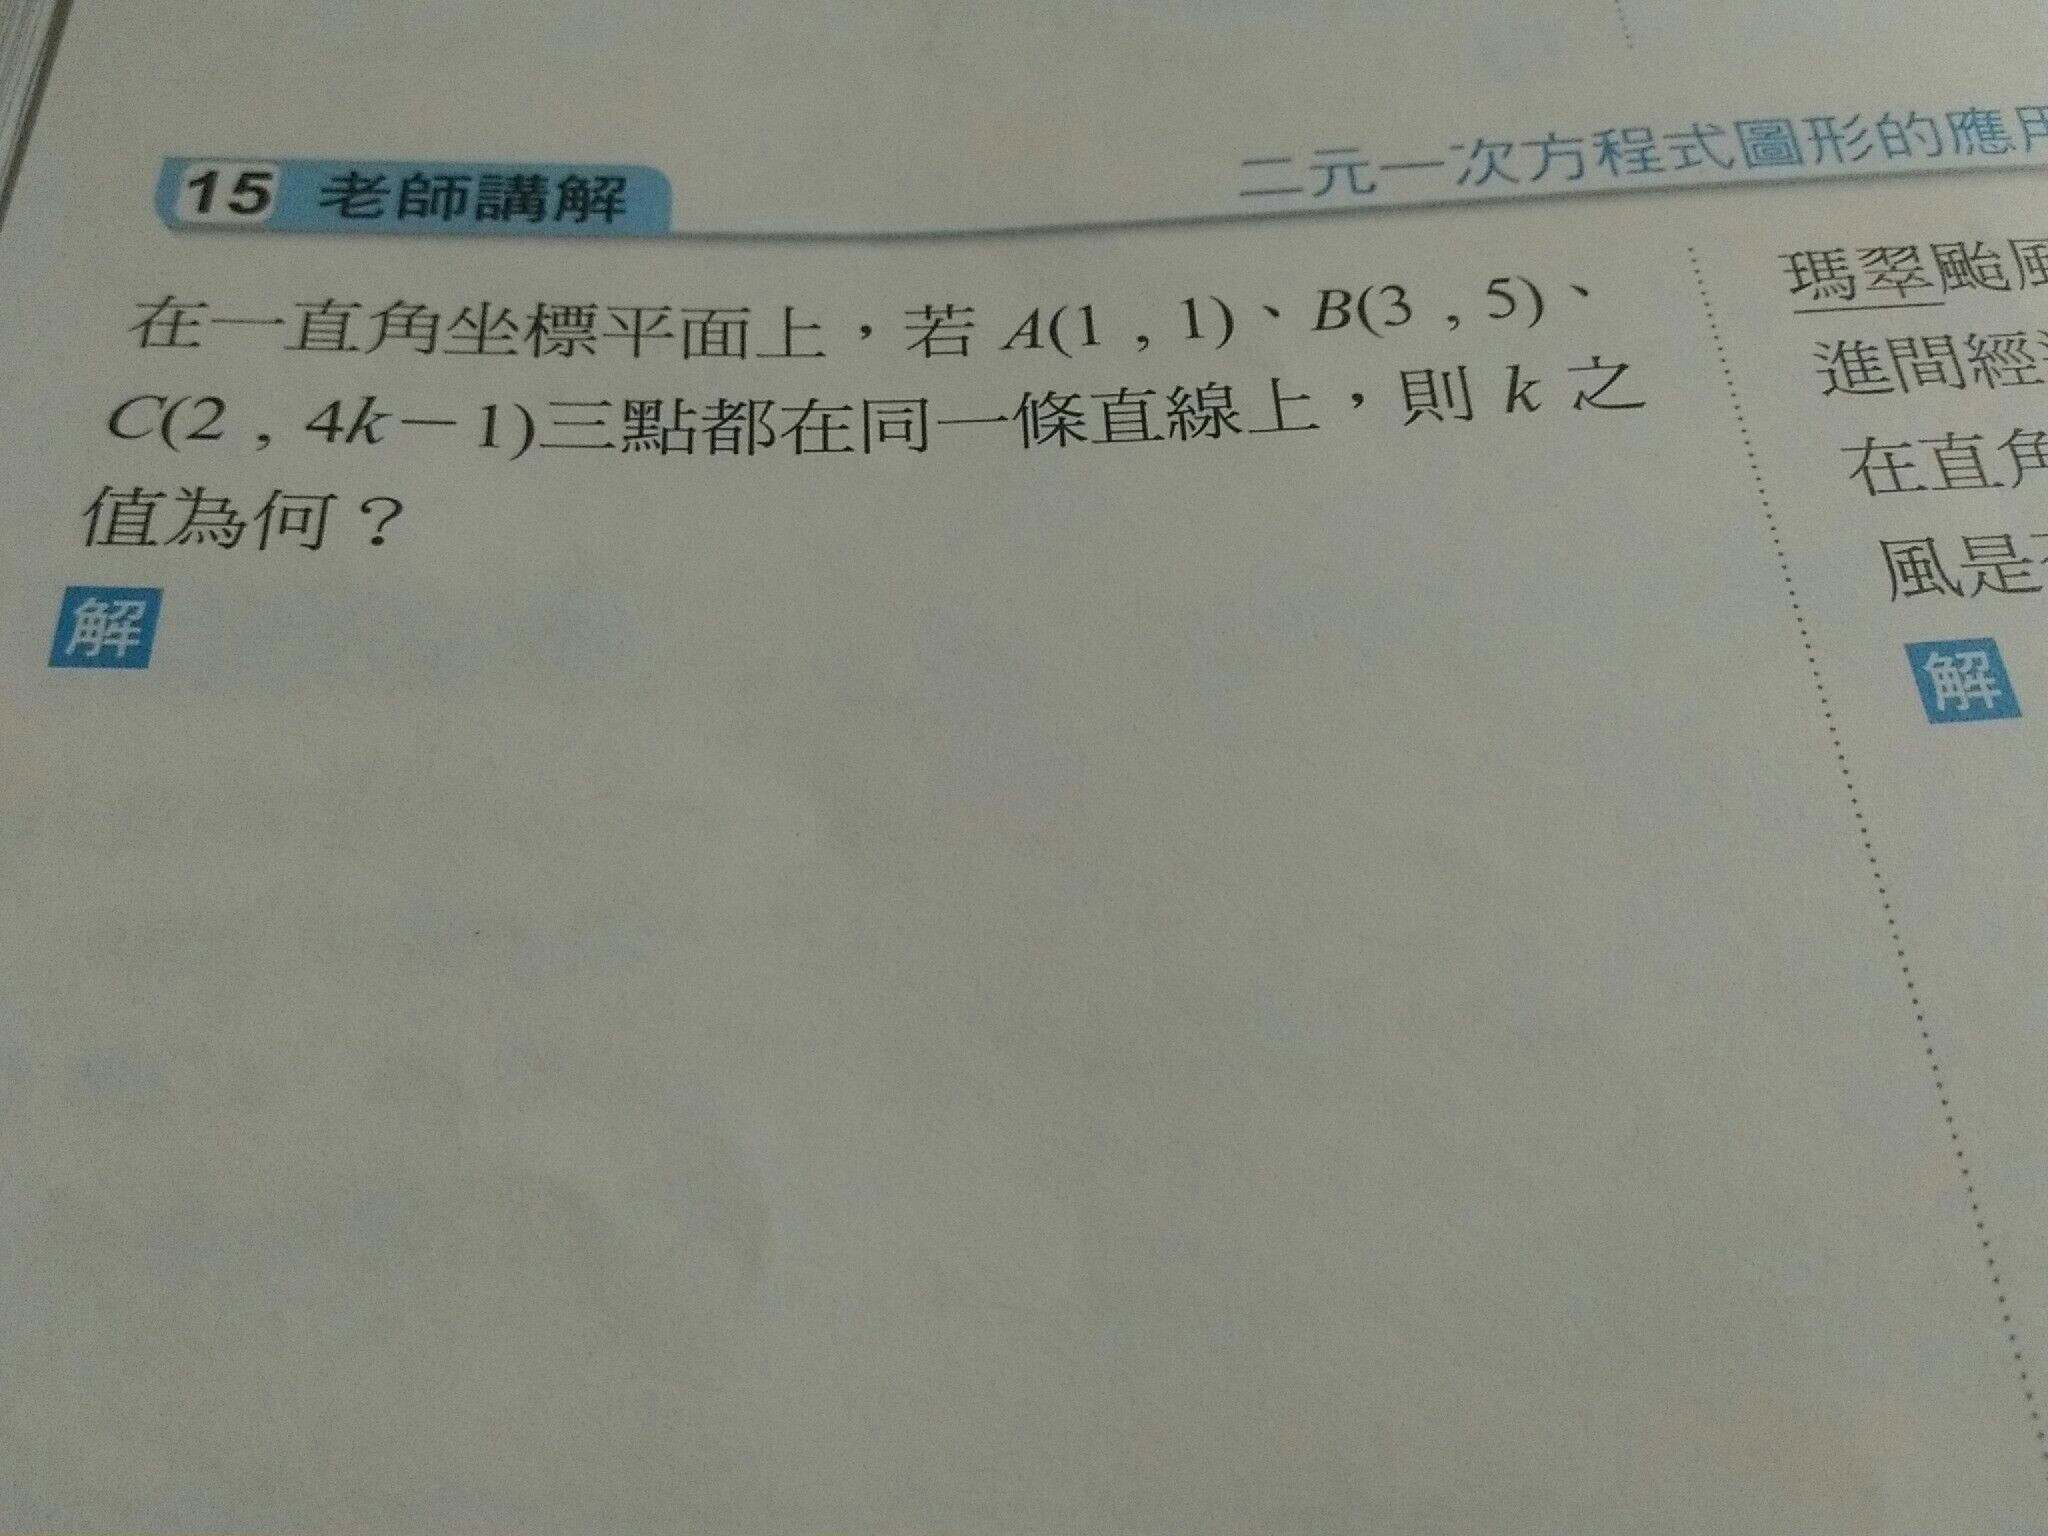 15 老師講解
二元一次方程式圖形的應用
在一直角坐標平面上，若 A(1 , 1)、B(3 , 5)、
C(2 , 4k－1)三點都在同一條直線上，則 k 之
值為何？
解
瑪翠颱風
進間經
在直角
風是
解